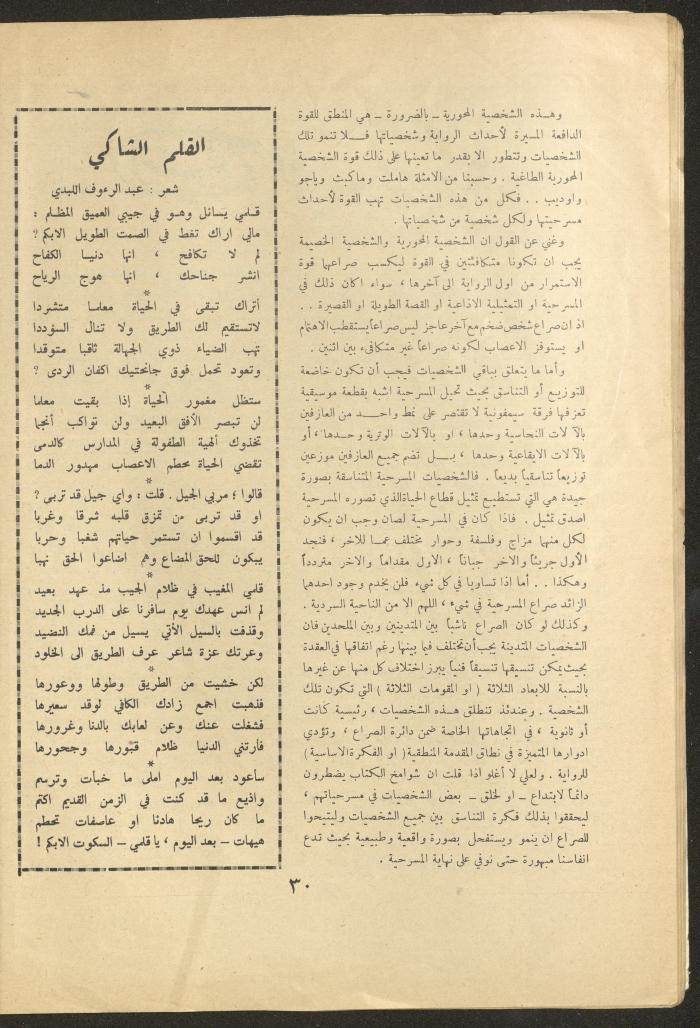 وهــذه الشخصية المحورية ــ بالضرورة ــ هي المنطق للقوة
الدافعة المسيرة لأحداث الرواية وشخصياتها فــلا تنمو تلك
الشخصيات وتتطور الا بقدر ما تعينها على ذلك قوة الشخصية
المحورية الطاغية . وحسبنا من الامثلة هاملت وماكبث وياجو
واوديب . . فكل من هذه الشخصيات تهب القوة لأحداث
مسرحيتها ولكل شخصية من شخصياتها .
وغني عن القول ان الشخصية المحورية والشخصية الخصيمة
يجب ان تكونا متكافئتين في القوة ليكسب صراعهما قوة
الاستمرار من اول الرواية الى آخرها ، سواء اكان ذلك في
المسرحية او التمثيلية الاذاعية او القصة الطويلة او القصيرة . .
اذ ان صراع شخص ضخم مع آخر عاجز ليس صراعاً يستقطب الاهتمام
او يستوفز الاعصاب لكونه صراعاً غير متكافىء بين اثنين .
وأما ما يتعلق بباقي الشخصيات فيجب أن تكون خاضعة
للتوزيع أو التناسق بحيث تحيل المسرحية اشبه بقطعة موسيقية
تعزفها فرقة سيمفونية لا تقتصر على نمط واحــد من العازفين
بالآلات النحاسية وحدها ، او بالآلات الوترية وحــدها ، أو
بالآلات الايقاعية وحدها ، بــل تضم جميع العازفين موزعين
توزيعاً تناسقياً بديعاً . فالشخصيات المسرحية المتناسقة بصورة
جيدة هي التي تستطيع تمثيل قطاع الحياة الذي تصوره المسرحية
اصدق تمثيل . فاذا كان في المسرحية لصان وجب ان يكون
لكل منهما مزاج وفلسفة وحوار مختلف عمــا للآخر ، فنجد
الأول جريئاً والآخر جباناً ، الاول مقداماً والاخر متردداً
وهكذا . . أما اذا تساويا في كل شيء فلن يخدم وجود احدهما
الزائد صراع المسرحية في شيء ، اللهم الا من الناحية السردية .
وكذلك لو كان الصراع ناشباً بين المتدينين وبين الملحدين فان
الشخصيات المتدينة يجب أن تختلف فيما بينها رغم اتفاقها في العقدة
بحيث يمكن تنسيقها تنسيقاً فنياً يبرز اختلاف كل منها عن غيرها
بالنسبة للابعاد الثلاثة ( او المقومات الثلاثة ) التي تكون تلك
الشخصية . وعندئذ تنطلق هــذه الشخصيات ، رئيسية كانت
أو ثانوية ، في اتجاهاتها الخاصة ضمن دائرة الصراع ، وتؤدي
ادوارها المتميزة في نطاق المقدمة المنطقية ( او الفكرة الاساسية )
للرواية . ولعلي لا أغلو اذا قلت ان شوامخ الكتاب يضطرون
دائماً لابتداع ــ او لخلق ــ بعض الشخصيات في مسرحياتهم ،
ليحققوا بذلك فكرة التناسق بين جميع الشخصيات وليتيحوا
للصراع ان ينمو ويستفحل بصورة واقعية وطبيعية بحيث تدع
انفاسنا مبهورة حتى نوفي على نهاية المسرحية .
القلم الشاكي
شعر : عبد الرءوف اللبدي
قــلمي يسائل وهــو في جيبي العميق المظــلم :
مالي اراك تغط في الصمت الطويل الابكم ?
لم لا تكافح ، انها دنيــا الكفاح
انشر جناحك ، انها هوج الرياح
*
أتراك تبــقى في الحياة معلمــا متشردا
لاتستقيم لك الطريق ولا تنال السؤددا
تهب الضياء ذوي الجهالة ثاقبا متوقدا
وتعود تحمل فوق جانحتيك اكفان الردى ?
*
ستظل مغمور الحياة إذا بقيت معلما
لن تبصر الأفق البعيد ولن تواكب أنجما
تخذوك ألهية الطفولة في المدارس كالدمى
تقضي الحياة محطم الاعصاب مهدور الدما
*
قالوا ؛ مربي الجيل . قلت : واي جيل قد تربى ?
او قد تربى من تمزق قلبه شرقا وغربا
قد اقسموا ان تستمر حياتهم شغبا وحربا
يبكون للحق المضاع وهم اضاعوا الحق نهبا
*
قلمي المغيب في ظلام الجيب مذ عهد بعيد
لم انس عهدك يوم سافرنا على الدرب الجديد
وقذفت بالسيل الأتي يسيل من فمك النضيد
وعرتك عزة شاعر عرف الطريق الى الخلود
*
لكن خشيت من الطريق وطولها ووعورها
فذهبت اجمع زادك الكافي لوقد سعيرها
فشغلت عنك وعن لعابك بالدنا وغرورها
فأرتني الدنيا ظلام قبورها وجحورها
*
سأعود بعد اليوم املى ما خبأت وترسم
واذيع ما قد كنت في الزمن القديم اكتم
ما كان ريحا هادئا او عاصفات تحطم
هيهات ــ بعد اليوم ، يا قلمي ــ السكوت الابكم !
٣٠